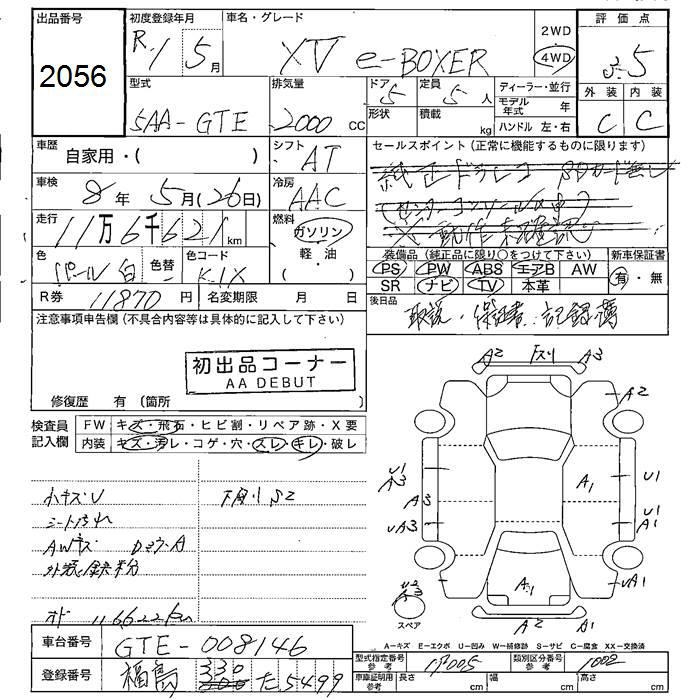 出品番号 2056
初度登録年月 R 1 5月
車名・グレード XV e-BOXER
2WD 4WD
評価点 3.5
型式 5AA-GTE
排気量 2000 CC
ドア 5
形状
定員 5人
積載 kg
ディーラー・並行
モデル年式 年
ハンドル 左・右
外装 C
内装 C
車歴 自家用・( )
シフト AT
車検 8年 5月(26日)
冷房 AAC
走行 11万6千621 km
燃料 ガソリン 軽・油
色 パール白
色替
色コード K1X
R券 11870円
名変期限 月 日
セールスポイント(正常に機能するものに限ります)
純正ドラレコ SDカード無し
動作未確認
装備品(純正品に限り○をつけて下さい)
PS PW ABS エアB AW
SR ナビ TV 本革
新車保証書 有・無
後日品
取説・保証書・記録簿
注意事項申告欄(不具合内容等は具体的に記入して下さい)
初出品コーナー
AA DEBUT
修復歴 有(箇所 )
検査員記入欄
FW キズ・飛石・ヒビ割・リペア跡・X要
内装 キズ・汚レ・コゲ・穴・スレ・キレ・破レ
小キズ・U
シート汚れ
AWキズ
外装鉄粉
下廻りS2
オド 116622km
A2 下スリ A3
A2
U1
A3
A3
UA3
A1
U1
U1
A1
A1
UA1
A2 A1
スペア
A−キズ E−エクボ U−凹み W−補修跡 S−サビ C−腐食 XX−交換済
車台番号 GTE-008146
登録番号 福島 330 た 5499
型式指定番号 参考 19005
類別区分番号 参考 1002
車庫証明用 参考 長さ cm 幅 cm 高さ cm